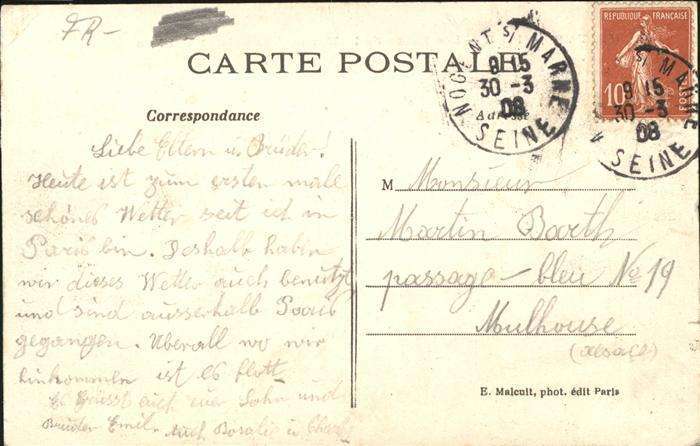 FR-
CARTE POSTALE
Correspondance
Adresse
NOGENT S/ MARNE
9 15
30 -3
08
SEINE
RÉPUBLIQUE FRANÇAISE
10
POSTES
S/ MARNE
9 15
30 -3
08
SEINE
Liebe Eltern u Brüder!
Heute ist zum ersten male
schönes Wetter seit ich in
Paris bin. Deshalb haben
wir dieses Wetter auch benutzt
und sind ausserhalb Paris
gegangen. Überall wo wir
hinkommen ist es flott
Es Grüsst euch euer Sohn und
Bruder Emil. Auch Rosalie u
M Monsieur
Martin Barth
passage-bleu No 19
Mulhouse
(Alsace)
E. Malcuit, phot. édit Paris